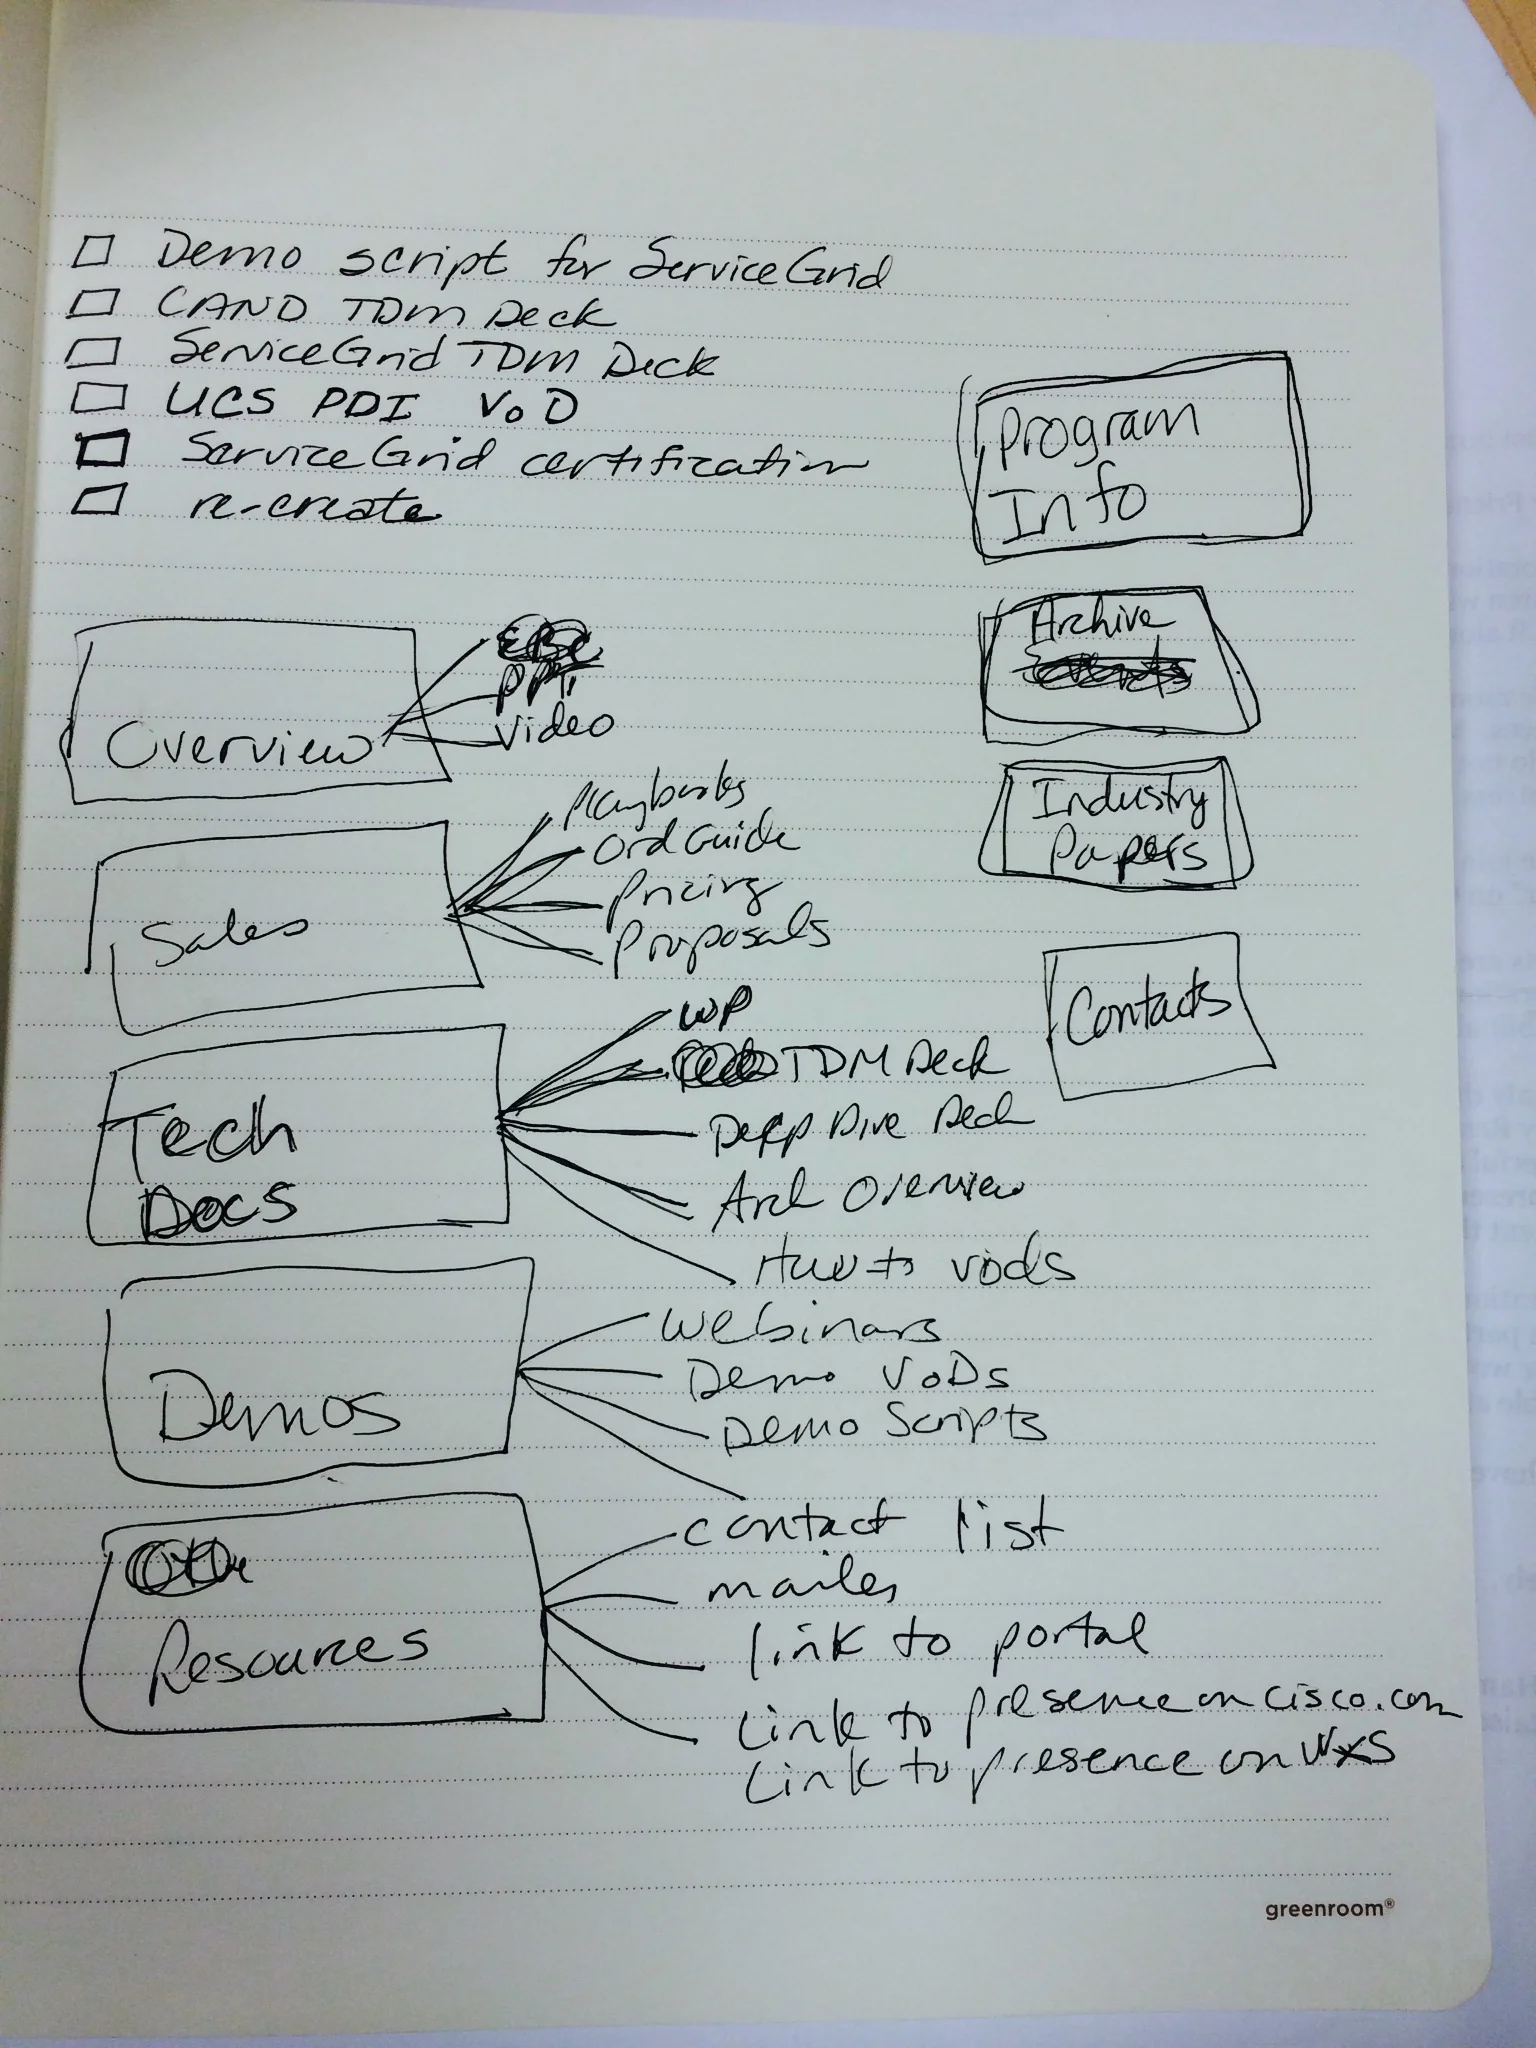 Demo script for ServiceGrid
CAND TDM Deck
ServiceGrid TDM Deck
UCS PDI VoD
ServiceGrid certification
re-create
Program
Info
Archive
Industry
Papers
Contacts
Overview
PPT
Video
Sales
Playbooks
Ord Guide
Pricing
Proposals
Tech
Docs
WP
TDM Deck
Deep Dive Deck
Arch Overview
How-to vods
Demos
Webinars
Demo VoDs
Demo Scripts
Resources
contact list
mailer
link to portal
Link to presence on cisco.com
Link to presence on
greenroom®